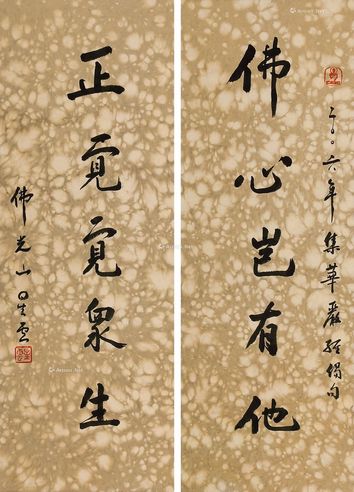 二〇〇六年集華嚴經偈句
佛心豈有他
正覺覺眾生
佛光山星雲